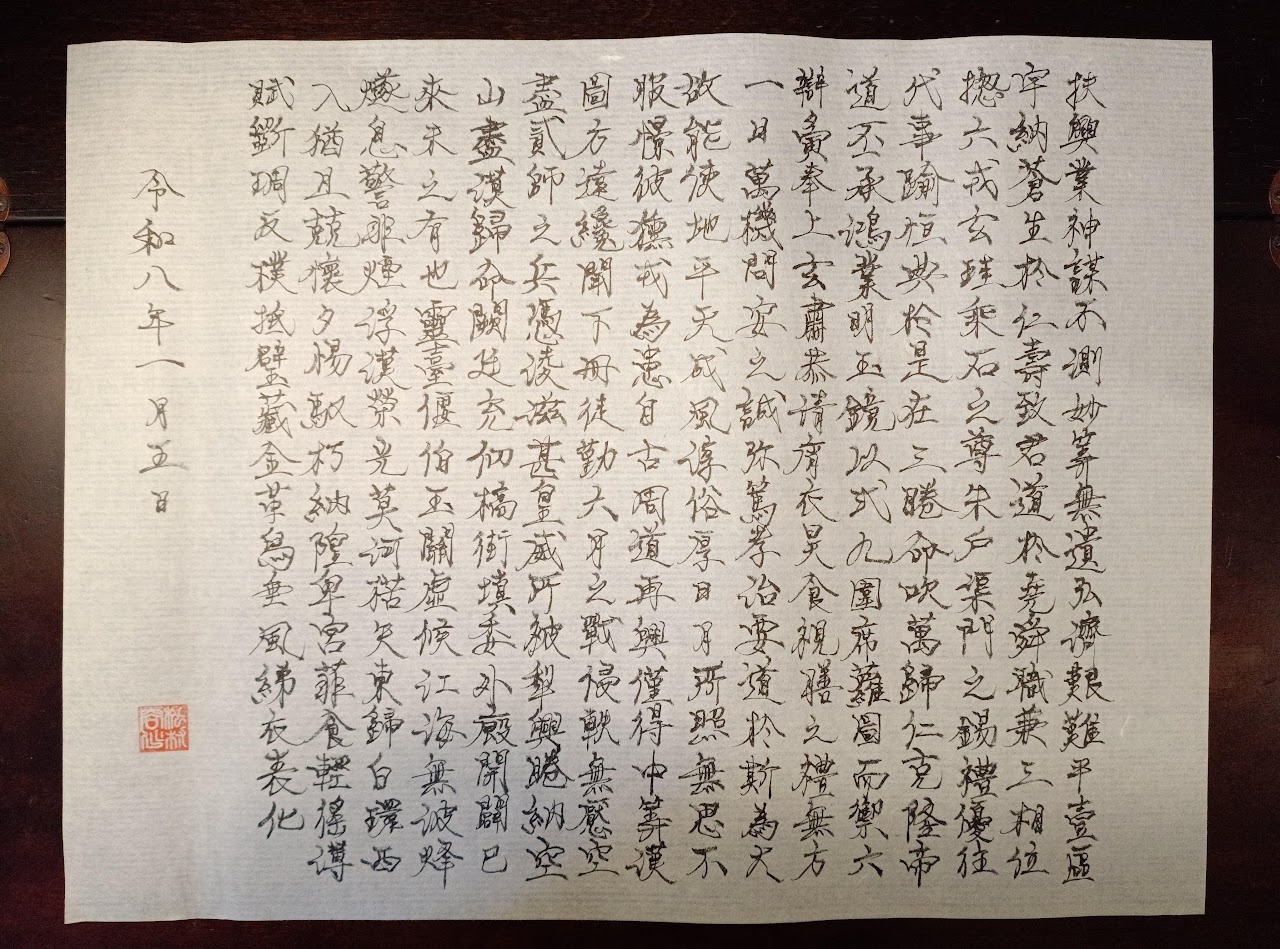 扶興業神謀不測妙筭無遺弘濟艱難平壹區
宇納蒼生於仁壽致君道於堯舜職兼三相位
揔六戎玄珪乘石之尊朱戶渠門之錫禮優往
代事踰恒典於是在三勝命吹萬歸仁克隆帝
道丕承鴻業明玉鏡以式九圍席蘿圖而禦六
辯夤奉上玄肅恭清宵衣昃食視膳之禮無方
一日萬機問安之誠弥篤孝治要道於斯為大
故能使地平天成風淳俗厚日月所照無思不
服憬彼獯戎為患自古周道再興僅得中筭漢
圖方遠纔聞下冊徒勤六月之戰侵軼無懕空
盡貳師之兵憑淩滋甚皇威所被犁興睠納空
山盡漠歸命闕廷充仞槁街填委外廄開闢已
來未之有也靈臺偃伯玉關虛候江海無波烽
燧息警非煙浮漢榮光莫河楛矢東歸白環西
入猶且兢懷夕惕馭朽納隍卑宮菲食輕徭薄
賦斲琱反樸抵璧藏金革舄垂風綈衣表化
令和八年一月五日